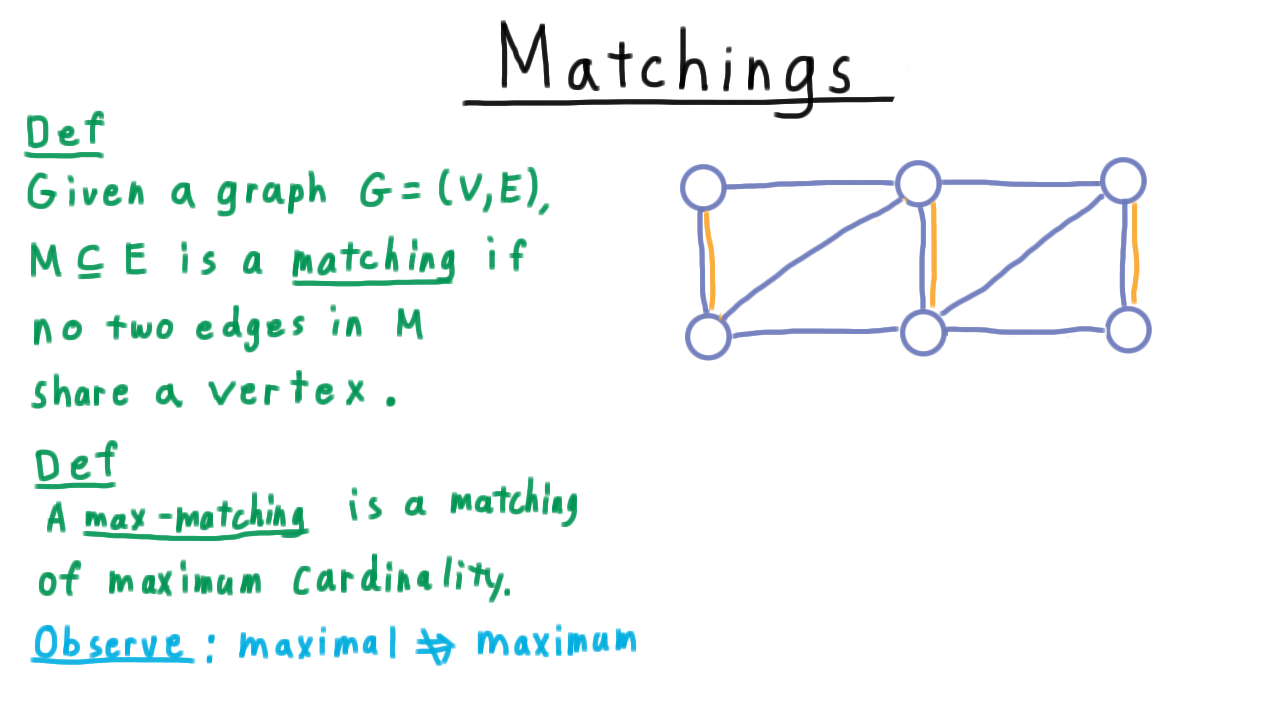 Matchings
Def
Given a graph G = (V,E),
M ⊆ E is a matching if
no two edges in M
share a vertex.
Def
A max-matching is a matching
of maximum cardinality.
Observe: maximal ⇏ maximum